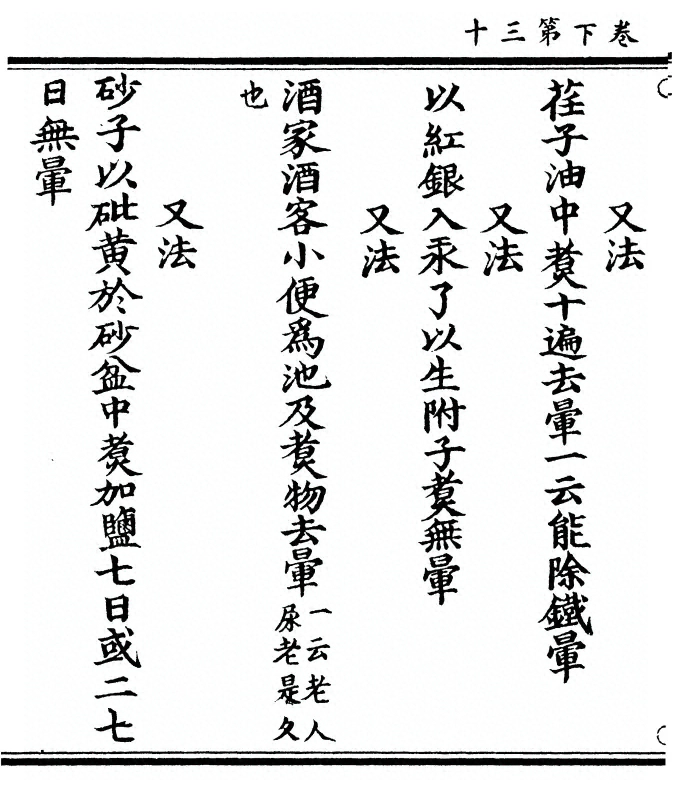 卷下第三十
又法
荏子油中煑十遍去暈一云能除鐵暈
又法
以紅銀入汞了以生附子煑無暈
又法
酒家酒客小便爲池及煑物去暈一云老人尿老是久
也
又法
砂子以砒黄於砂盆中煑加鹽七日或二七
日無暈